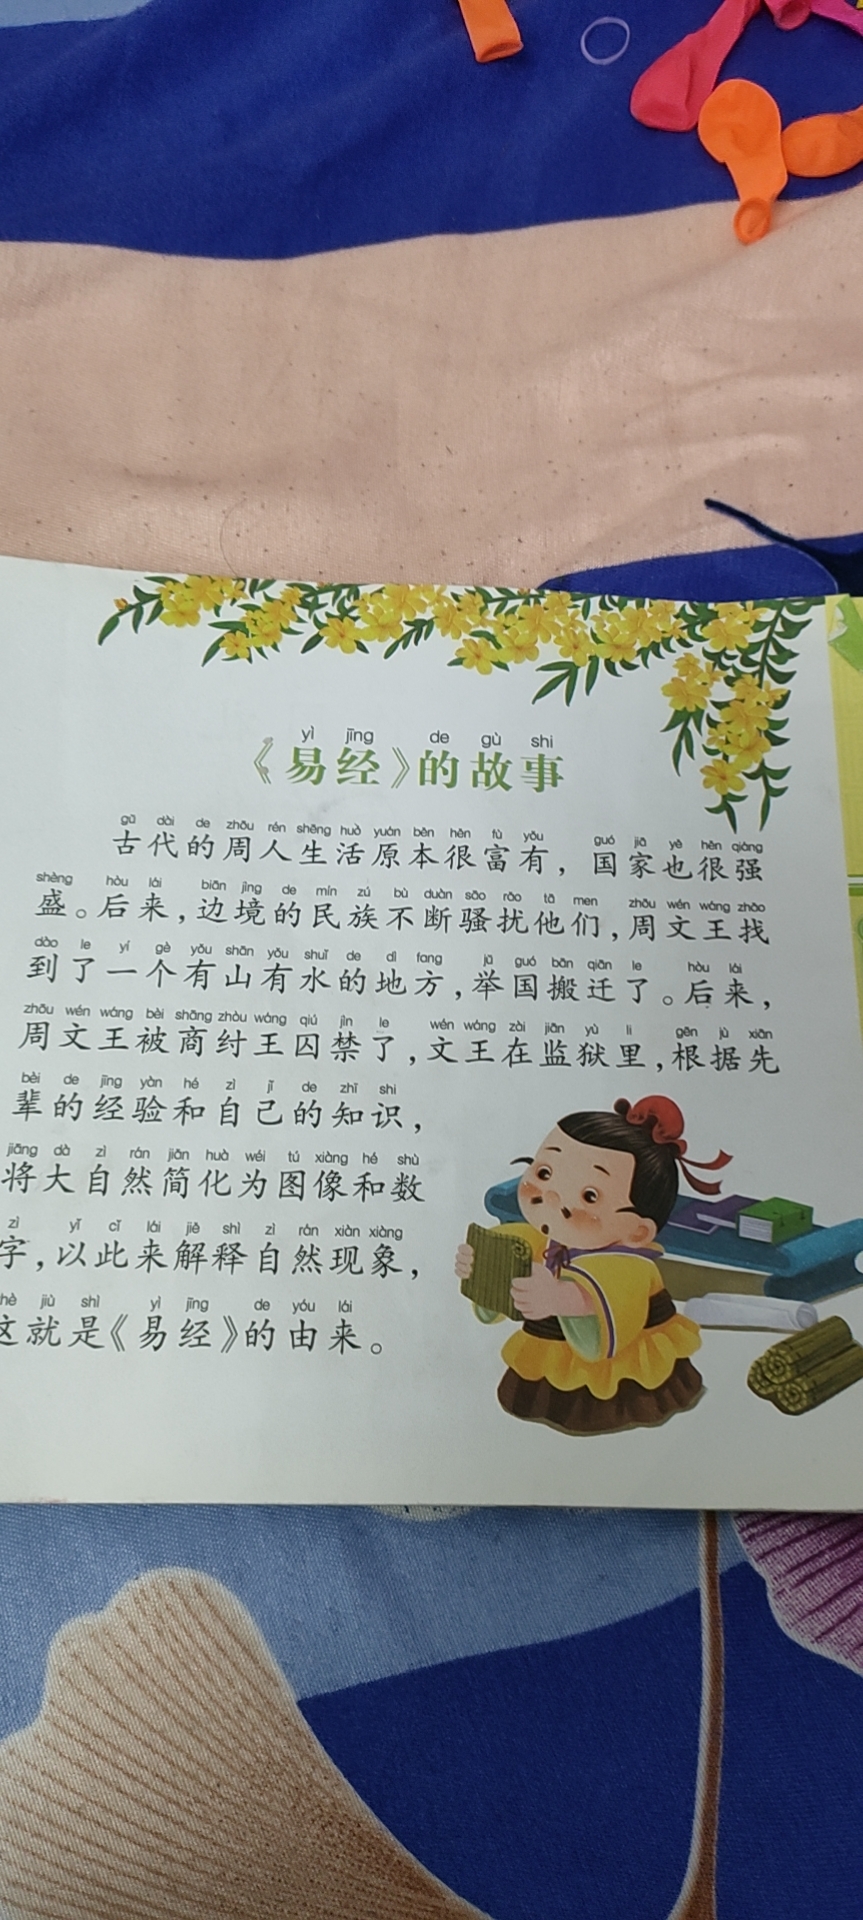 yì jīng de gù shi
《易经》的故事
gǔ dài de zhōu rén shēng huó yuán běn hěn fù yǒu guó jiā yě hěn qiáng
古代的周人生活原本很富有，国家也很强
shèng hòu lái biān jìng de mín zú bù duàn sāo rǎo tā men zhōu wén wáng zhǎo
盛。后来，边境的民族不断骚扰他们，周文王找
dào le yí gè yǒu shān yǒu shuǐ de dì fang jǔ guó bān qiān le hòu lái
到了一个有山有水的地方，举国搬迁了。后来，
zhōu wén wáng bèi shāng zhòu wáng qiú jìn le wén wáng zài jiān yù li gēn jù xiān
周文王被商纣王囚禁了，文王在监狱里，根据先
bèi de jīng yàn hé zì jǐ de zhī shi
辈的经验和自己的知识，
jiāng dà zì rán jiǎn huà wéi tú xiàng hé shù
将大自然简化为图像和数
zì yǐ cǐ lái jiě shì zì rán xiàn xiàng
字，以此来解释自然现象，
hè jiù shì yì jīng de yóu lái
这就是《易经》的由来。